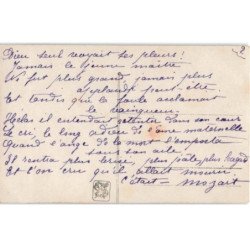 Dieu seul voyait ses pleurs!
Jamais le jeune maître
Ne fut plus grand, jamais plus
applaudi peut-être
Et tandis que la foule acclamait
le vainqueur
Helas il entendait retentir dans son cœur
Le cri, le long adieu de l'âme maternelle
Quand l'ange de la mort l'emporta
sous son aile
Il rentra plus brisé, plus pâle, plus
Et l'on cru qu'il allait mourir
c'était Mozart